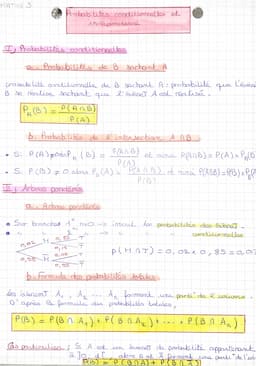 MATHS
Probabilités conditionnelles et
indépendance
I) Probabilités conditionnelles
a. Probabilités de B sachant A
probabilité conditionnelle de B sachant A : probabilité que l'évén
B se réalise sachant que l'évén A est réalisé.
P_A(B) = P(A∩B) / P(A)
b. Probabilité de l'intersection A∩B
• Si P(A) ≠ 0 P_A(B) = P(A∩B) / P(A) et donc P(A∩B) = P(A) × P_A(B)
• Si P(B) ≠ 0 alors
II) Arbres pondérés
a. Arbres pondérés
• Sur branches 1er
probabilités des évent.
conditionnelles
0,02 M 0,85 T
p(M∩T) = 0,02 × 0,85 = 0,01
b. Formule des probabilités totales
Les évent A₁, A₂ ... Aₙ forment une partit° de l'univers.
D'après la formule des probabilités totales,
P(B) = P(B∩A₁) + P(B∩A₂) + ... + P(B∩Aₙ)
Cas particulier : Si A est un évent de probabilité appartenant
à ]0,1[, alors A et Ā forment une partit° de l'uni
P(B) = P(B∩A) + P(B∩Ā)